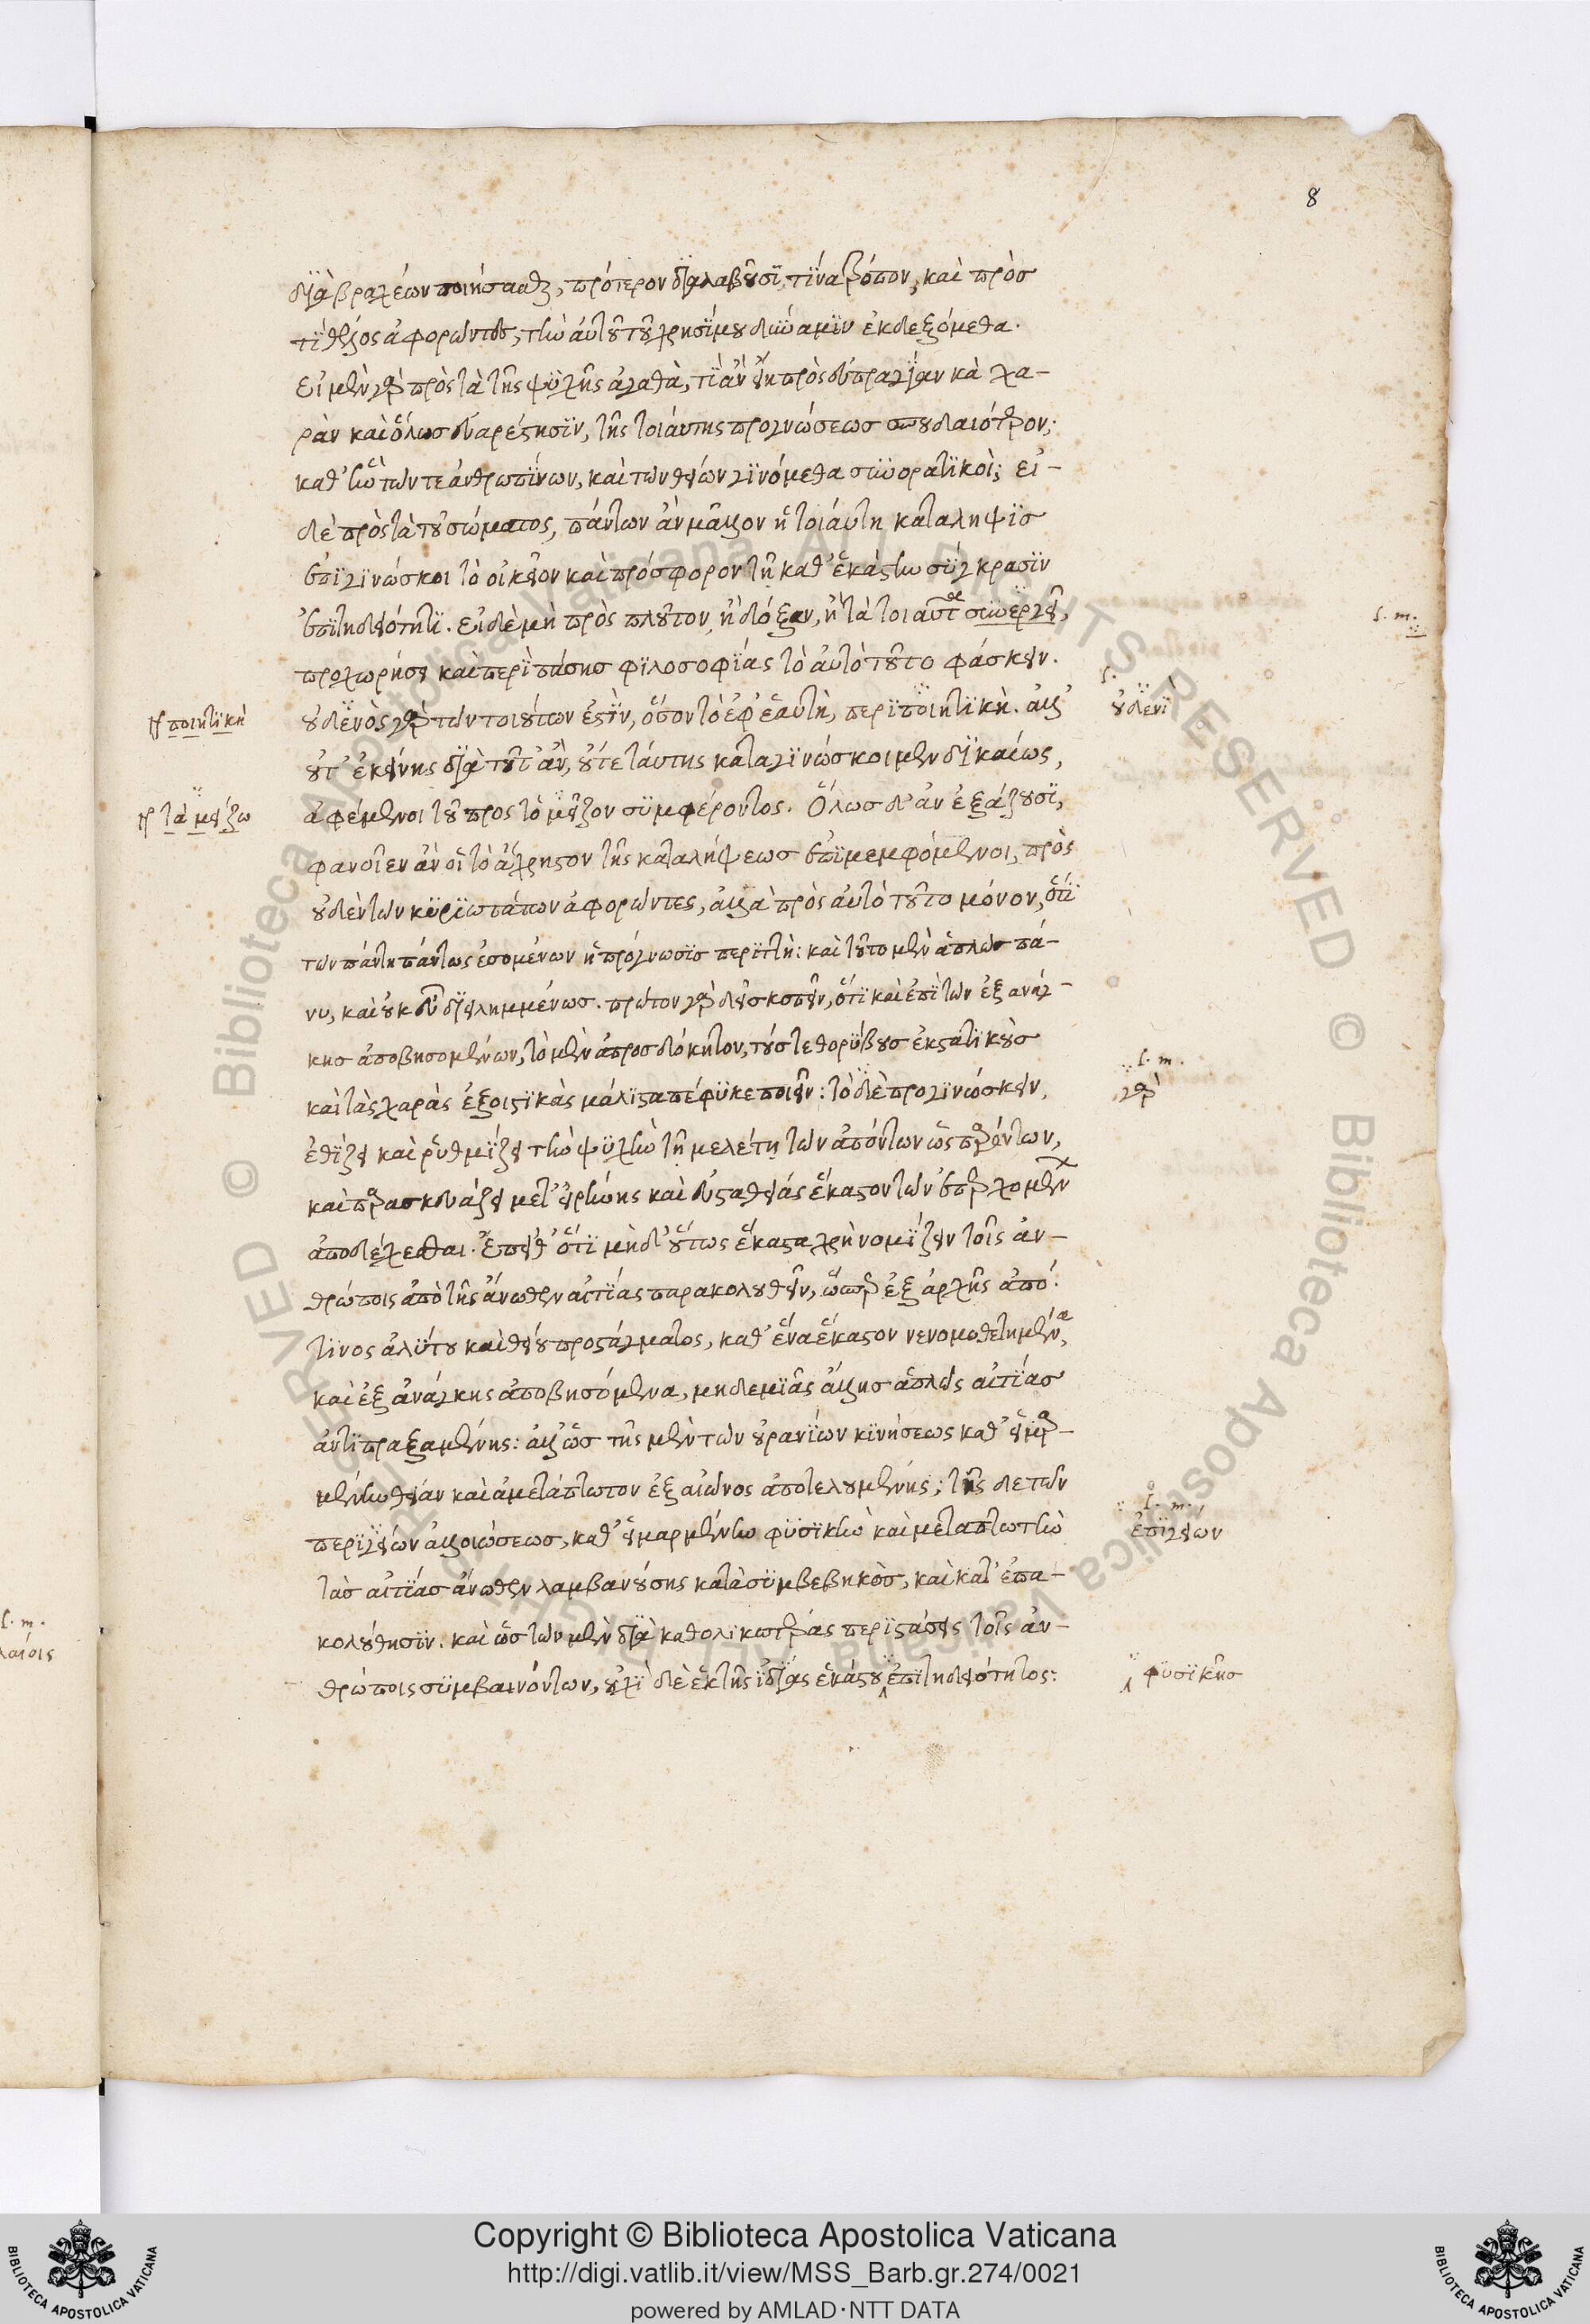 8
διὰ βραχέων ποιήσασθαι, πρότερον διαλαβοῦσι, τίνα τρόπον, καὶ πρὸσ
τί τέλος ἀφορῶντες, τὴν αὐτοῦ τοῦ χρησίμου δύναμιν ἐκδεξόμεθα.
εἰ μὲν γὰρ πρὸς τὰ τῆς ψυχῆς ἀγαθὰ, τί ἂν εἴη πρὸς εὐπραγίαν κὰ χα-
ρὰν καὶ ὅλωσ εὐαρέστησιν, τῆς τοιάυτης προγνώσεωσ σπουδαιότερον;
καθ' ἣν τῶν τε ἀνθρωπίνων, καὶ τῶν θείων γινόμεθα συνορατικοὶ; εἰ-
δὲ πρὸς τὰ τοῦ σώματος, πάντων ἂν μᾶλλον ἡ τοιάυτη κατάληψισ
ἐπιγινώσκοι τὸ οἰκεῖον καὶ πρόσφορον τῇ καθ' ἑκάστην σύγκρασιν
ἐπιτηδειότητι. εἰ δὲ μὴ πρὸς πλοῦτον, ἢ δόξαν, ἢ τὰ τοιαῦτα συνεργεῖ,
προχωρήσει καὶ περὶ πάσησ φιλοσοφίας τὸ αὐτὸ τοῦτο φάσκειν.
οὐδενὸς γὰρ τῶν τοιούτων ἐστὶν, ὅσον τὸ ἐφ' ἑαυτῇ, περιποιητικὴ. ἀλλ'
οὔτ' ἐκείνης διὰ τοῦτ' ἂν, οὔτε ταύτης καταγινώσκοιμεν δικαίως,
ἀφέμενοι τοῦ πρὸς τὸ μεῖζον συμφέροντος. Ὅλωσ δ' ἂν ἐξετάζουσι,
φανοῖεν ἂν οἱ τὸ ἄχρηστον τῆς καταλήψεωσ ἐπιμεμφόμενοι, πρὸς
οὐδὲν τῶν κυριωτάτων ἀφορῶντες, ἀλλὰ πρὸς αὐτὸ τοῦτο μόνον, ὅτι
τῶν πάντη πάντως ἐσομένων ἡ πρόγνωσισ περιττὴ: καὶ τοῦτο μὲν ἁπλῶσ πά-
νυ, καὶ οὐκ εὖ διειλημμένωσ. πρῶτον γὰρ δεῖ σκοπεῖν, ὅτι καὶ ἐπὶ τῶν ἐξ ανάγ-
κησ ἀποβησομένων, τὸ μὲν ἀπροσδόκητον, τούς τε θορύβουσ ἐκστατικοὺσ
καὶ τὰς χαρὰς ἐξοιστικὰς μάλιστα πέφυκε ποιεῖν: τὸ δὲ προγινώσκειν,
ἐθίζει καὶ ῥυθμίζει τὴν ψυχὴν τῇ μελέτῃ τῶν ἀπόντων ὡς παρόντων,
καὶ παρασκευάζει μετ' εἰρήνης καὶ εὐσταθείάς ἕκαστον τῶν ἐπερχομένων
ἀποδέχεσθαι. Ἔπειθ' ὅτι μὴ δ' οὕτως ἕκαστα χρὴ νομίζειν τοῖς ἀν-
θρώποις ἀπὸ τῆς ἄνωθεν αἰτίας παρακολουθεῖν, ὥσπερ ἐξ ἀρχῆς ἀπό
τινος ἀλύτου καὶ θείου προστάγματος, καθ' ἕνα ἕκαστον νενομοθετημένα,
καὶ ἐξ ἀνάγκης ἀποβησόμενα, μηδεμιᾶς ἄλλησ ἁπλῶς αἰτίασ
ἀντιπραξαμένης: ἀλλ' ὡσ τῆς μὲν τῶν οὐρανίων κινήσεως καθ' εἱμαρ-
μένην θείαν καὶ ἀμετάπτωτον ἐξ αἰῶνος ἀποτελουμένης; τῆς δὲ τῶν
περιγείων ἀλλοιώσεωσ, καθ' εἱμαρμένην φυσικὴν καὶ μεταπτωτὴν
τὰσ αἰτίασ ἄνωθεν λαμβανούσης κατὰ συμβεβηκὸσ, καὶ κατ' ἐπα-
κολούθησιν. καὶ ὡσ τῶν μὲν διὰ καθολικωτέρας περιστάσεις τοῖς ἀν-
θρώποις συμβαινόντων, οὐχὶ δὲ ἐκ τῆς ἰδίας ἑκάστου ἐπιτηδειότητος:
ποιητικὴ
τὰ μείζω
f. m.
f.
οὐδενὶ
f. m.
γὰρ
f. m.
ἐπιγείων
φυσικῆσ
f. m.
λαίοις
Copyright © Biblioteca Apostolica Vaticana
http://digi.vatlib.it/view/MSS_Barb.gr.274/0021
powered by AMLAD·NTT DATA